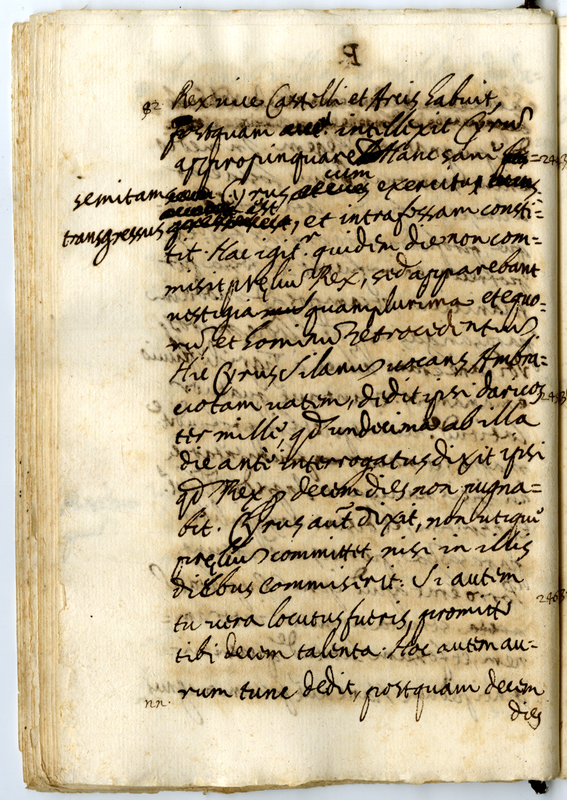 P
82 Rex vice Castelli et Arcis habuit,
postquam intellexit Cyrũ
appropinquare Hanc sanẽ
semitam Cyrus cum exercitus
transgressus est, et intra fossam consti=
tit. Hac igitr quidem die non com=
misit pręliũ Rex, sed apparebant
vestigia quamplurima et equo=
rũ, et hominũ retrocedentiũ.
Hic Cyrus Silanũ vocans Ambra=
ciotam vatem, dedit ipsi daricos
ter mille, qd undecima ab illa
die ante interrogatus dixit ipsi
qd Rex p decem dies non pugna=
bit. Cyrus aut dixit, non utiquẽ
pręliũ committet, nisi in illis
diebus commiserit: Si autem
tu vera locutus fueris, promitto
tibi decem talenta. Hoc autem au=
rum tunc dedit, postquam decem
nn. dies